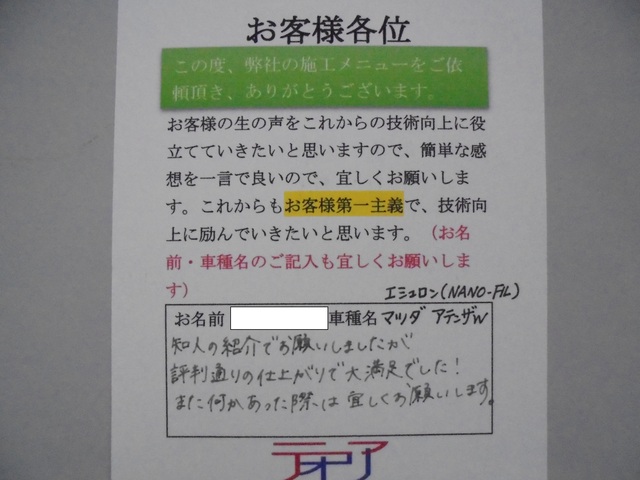 お客様各位
この度、弊社の施工メニューをご依
頼頂き、ありがとうございます。
お客様の生の声をこれからの技術向上に役
立てていきたいと思いますので、簡単な感
想を一言で良いので、宜しくお願いしま
す。これからもお客様第一主義で、技術向
上に励んでいきたいと思います。（お名
前・車種名のご記入も宜しくお願いしま
す）
エシュロン(NANO-FIL)
お名前 車種名 マツダ アテンザW
知人の紹介でお願いしましたが
評判通りの仕上がりで大満足でした!
また何かあった際は宜しくお願いします。
テオリア